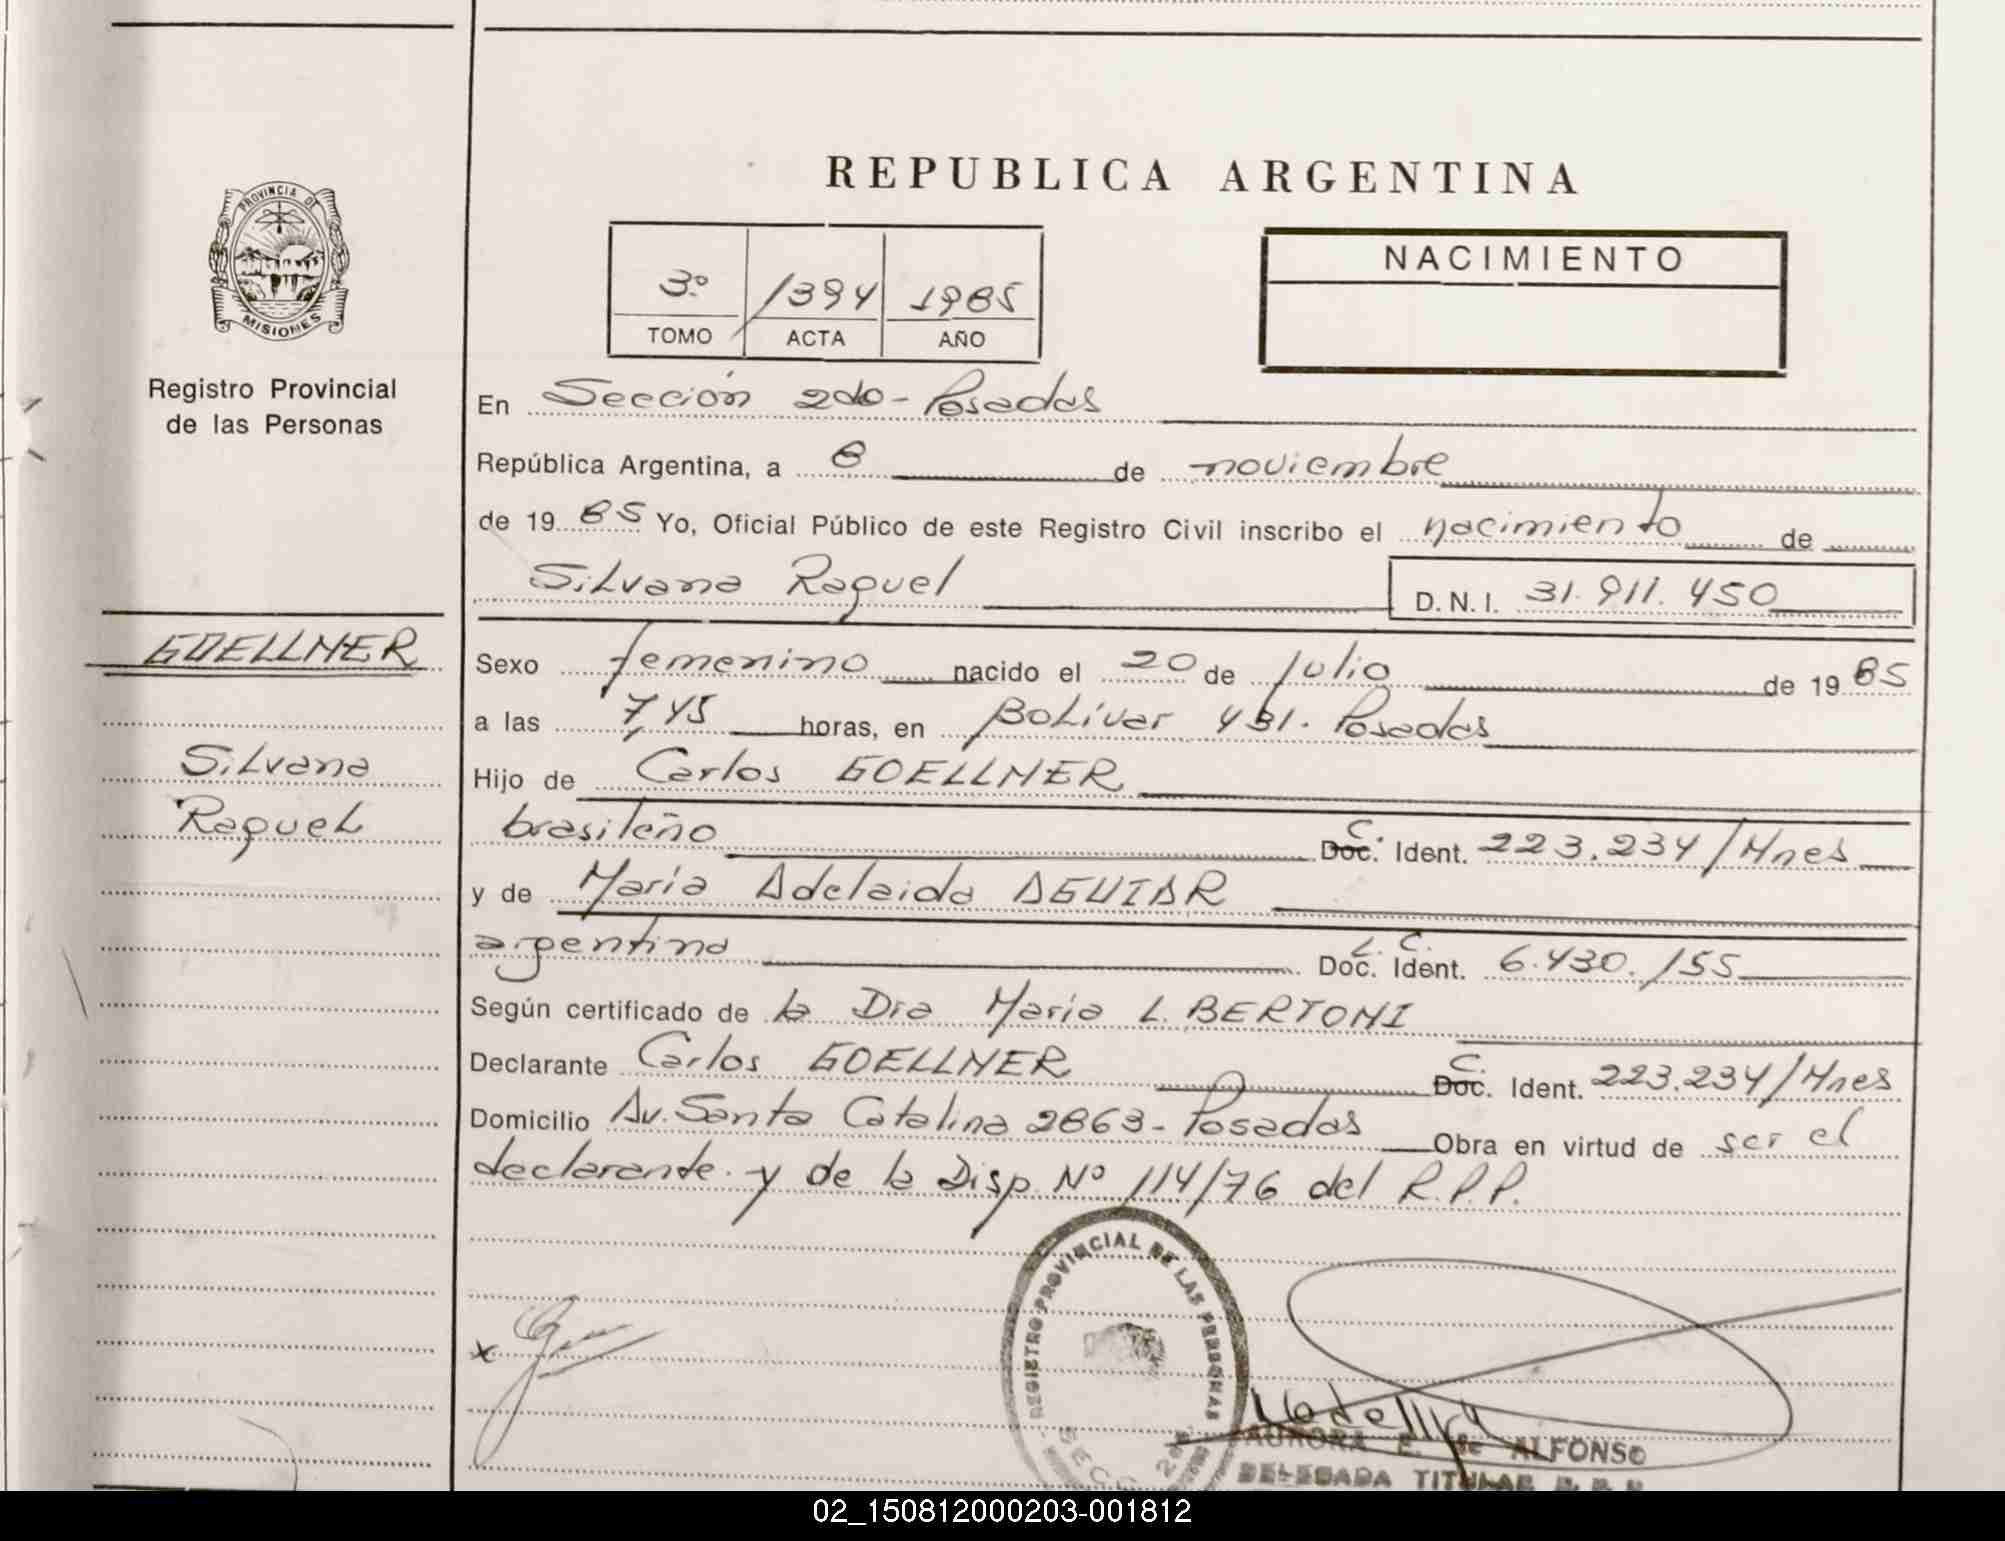 REPUBLICA ARGENTINA
PROVINCIA DE
MISIONES
Registro Provincial
de las Personas
3º 1394 1985
TOMO ACTA AÑO
NACIMIENTO
En Sección 2do - Posadas
República Argentina, a 8 de noviembre
de 19 85 Yo, Oficial Público de este Registro Civil inscribo el nacimiento de
Silvana Raquel D.N.I. 31.911.450
GOELLNER
Silvana
Raquel
Sexo femenino nacido el 20 de julio de 19 85
a las 7,45 horas, en Bolívar 431. Posadas
Hijo de Carlos GOELLNER
brasileño C. Doc. Ident. 223.234/Mnes
y de María Adelaida AGUIAR
argentina L.C. Doc. Ident. 6.430.155
Según certificado de la Dra María L. BERTONI
Declarante Carlos GOELLNER C. Doc. Ident. 223.234/Mnes
Domicilio Av. Santa Catalina 2863 - Posadas Obra en virtud de ser el
declarante y de la Disp. Nº 114/76 del R.P.P.
REGISTRO PROVINCIAL DE LAS PERSONAS
SECC. 2
x
AURORA E. de ALFONSO
DELEGADA TITULAR
02_150812000203-001812